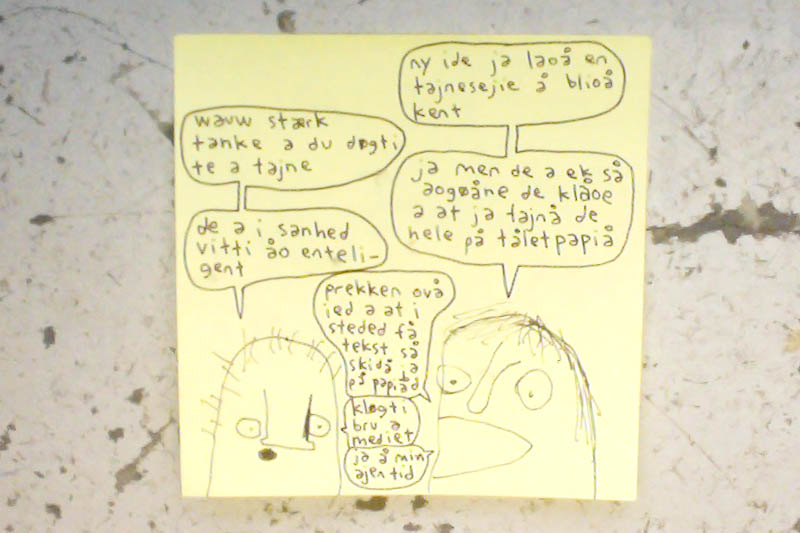 ny ide ja laoå en
tajnesejie å blioå
kent
ja men de a ek så
aogøåne de klåoe
a at ja tajnå de
hele på tåletpapiå
wavw stærk
tanke a du døgti
te a tajne
de a i sanhed
vitti åo enteli-
gent
prekken ovå
ied a at i
steded få
tekst så
skidå ja
på papiåd
kløgti
bru a
mediet
ja å min
ajen tid